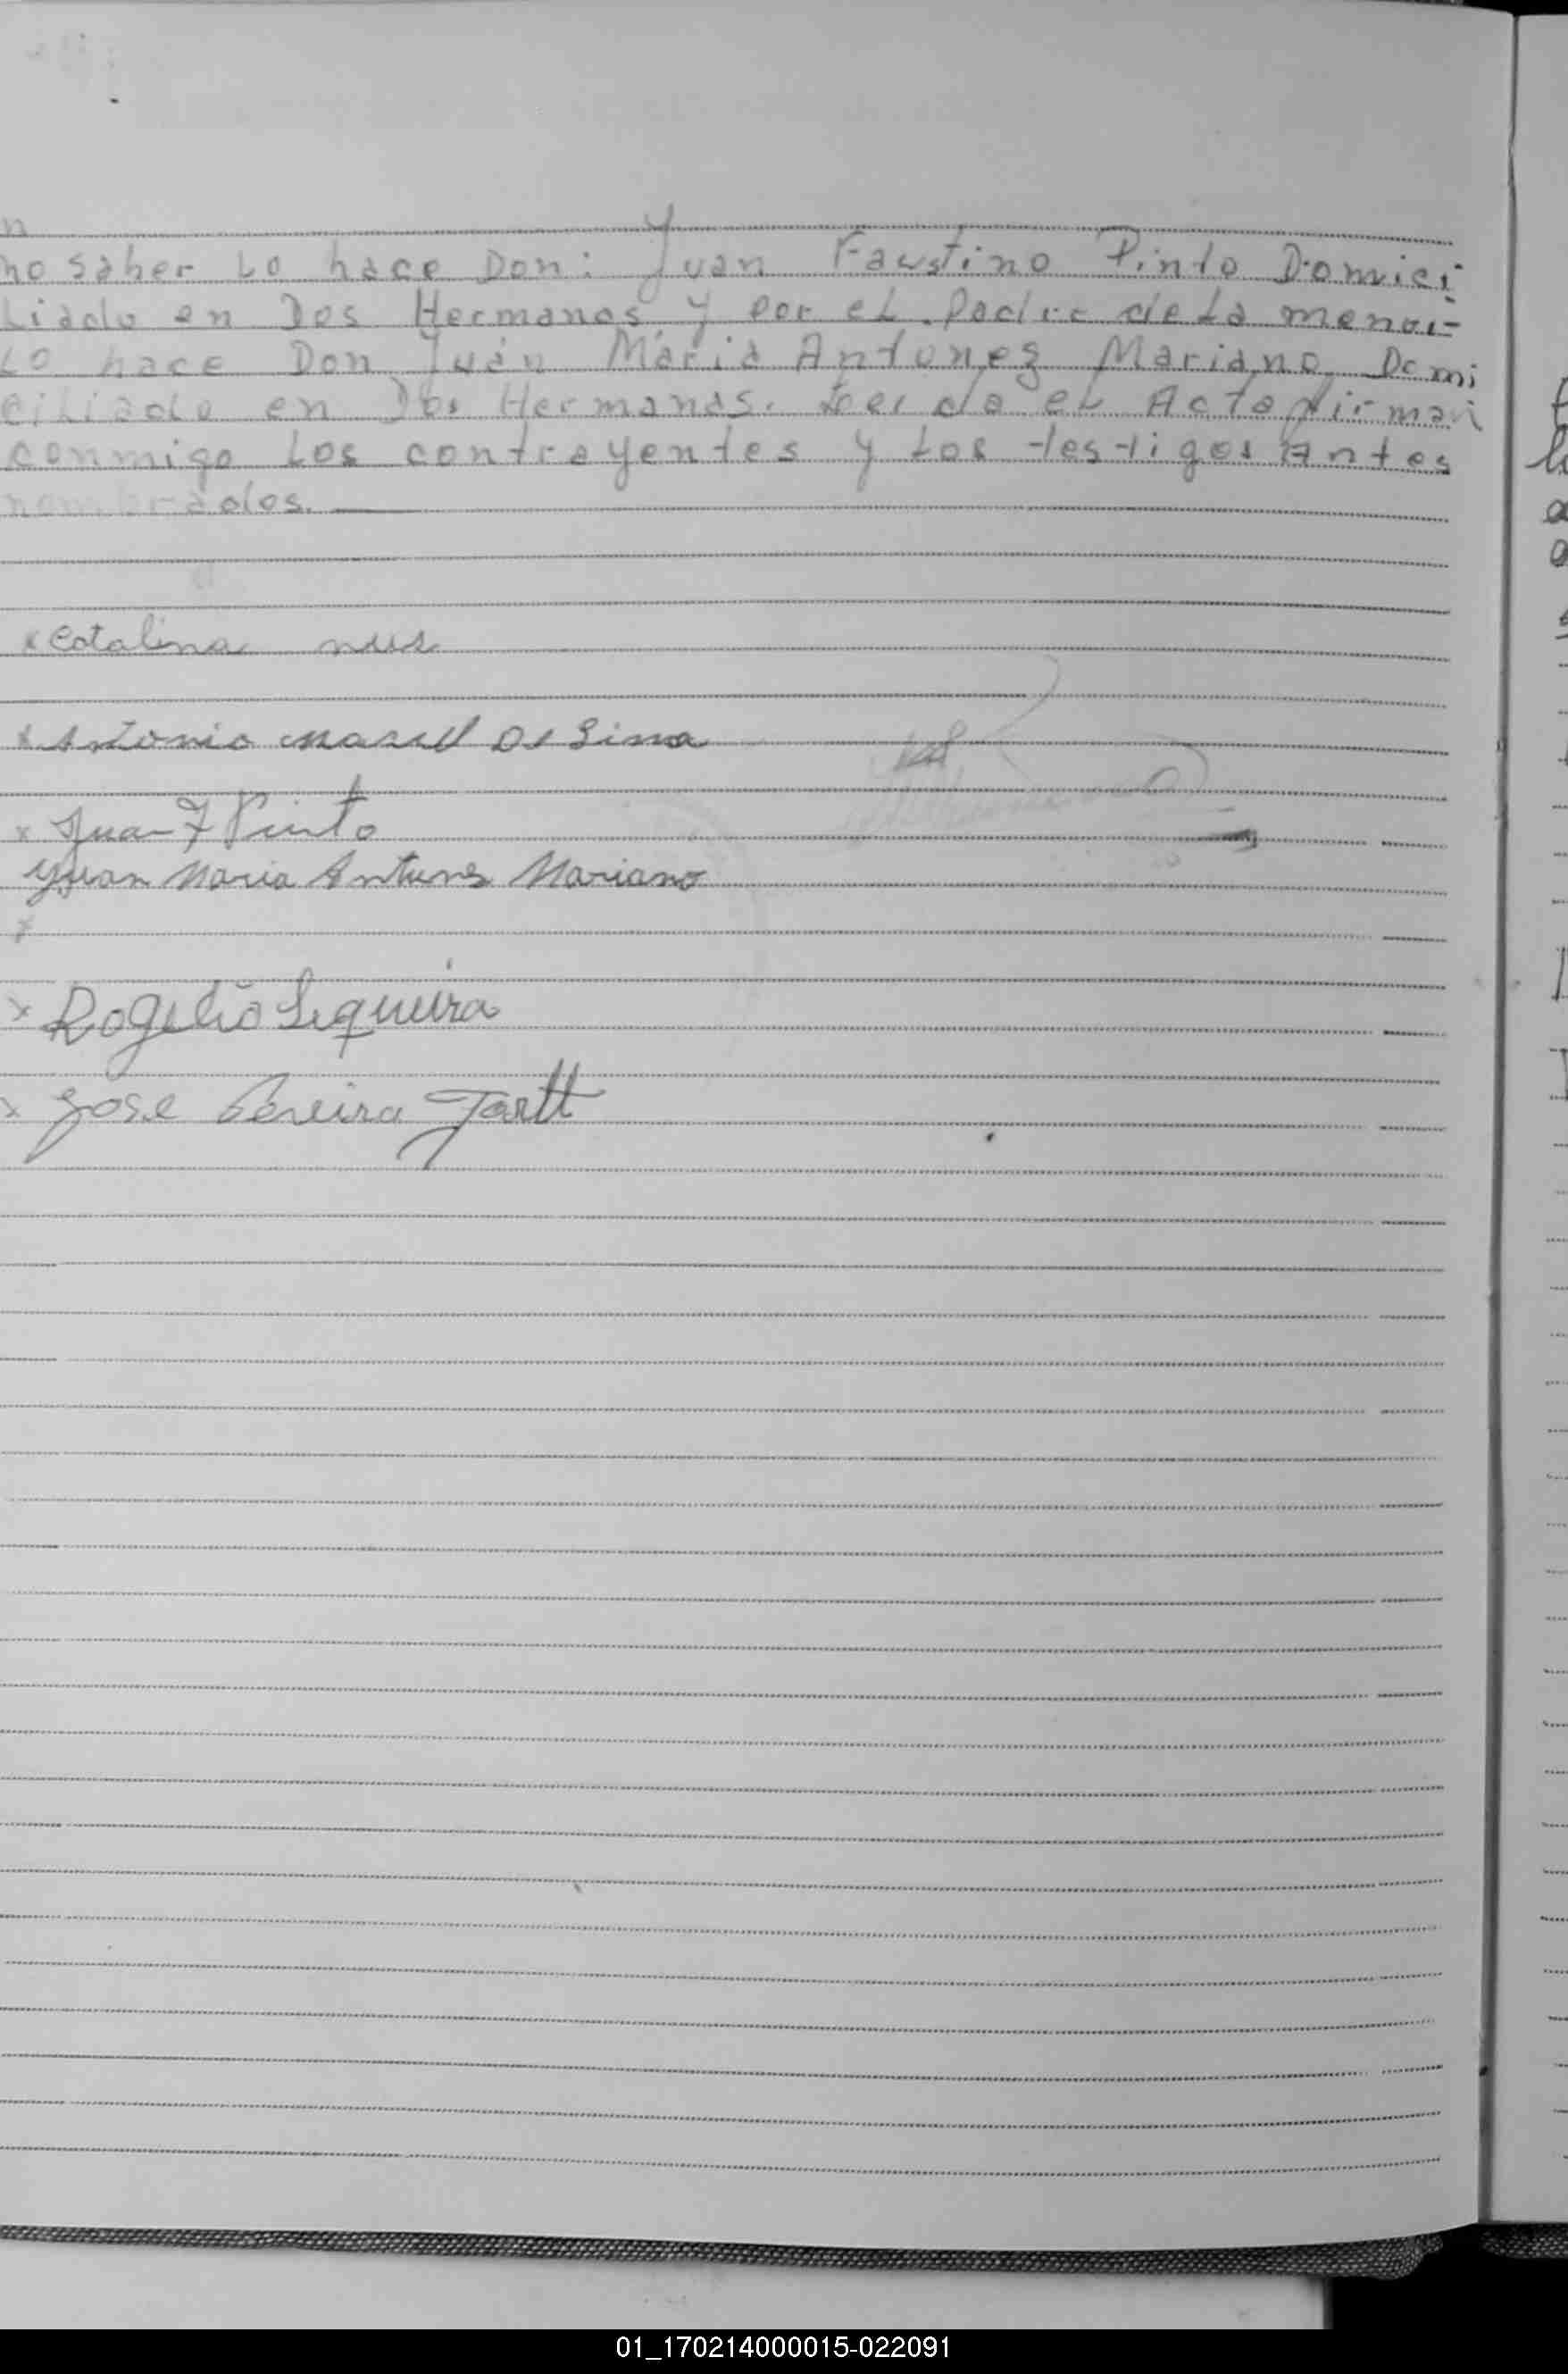 n
no saber Lo hace Don: Juan Faustino Pinto Domici
Liado en Dos Hermanas y por el Padre de La menor
Lo hace Don Juan Maria Antonez Mariano Domi
ciliado en Dos Hermanas. Leida el Acta firman
conmigo Los contrayentes y Los testigos Antes
nombrados.
x Catalina
x Antonio Da Lima
x Juan F Pinto
Yuan Maria Antunes Mariano
x
x Rogelio Siqueira
x Jose Pereira
01_170214000015-022091